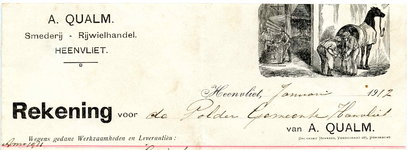 A. QUALM.
Smederij - Rijwielhandel.
HEENVLIET.
Heenvliet, Januari 1912
Rekening voor de Polder Gemeente Heenvliet
van A. QUALM.
Wegens gedane Werkzaamheden en Leverantiën:
Anno 1911